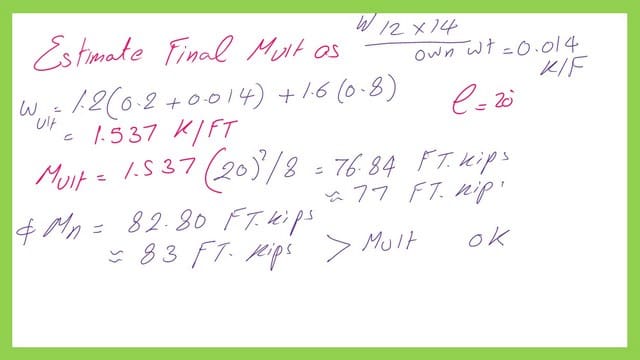 Estimate Final Mult as W 12 x 14
own wt = 0.014 K/F
W ult = 1.2(0.2 + 0.014) + 1.6(0.8) l = 20'
= 1.537 K/FT
Mult = 1.537 (20)²/8 = 76.84 FT.kips
≈ 77 FT. kip
ϕ Mn = 82.80 FT.kips
≈ 83 FT. kips > Mult OK